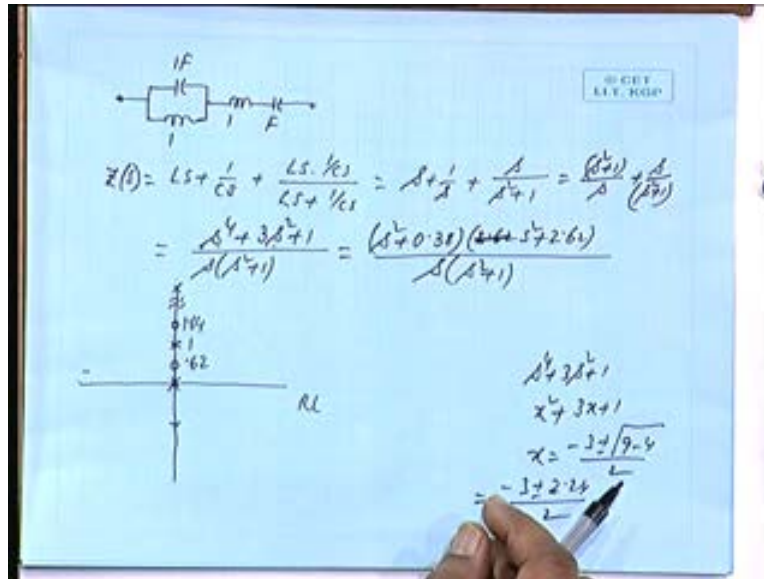 © CET
I.I.T. KGP
1F
1
1
F
Z(s) = LS + 1/CS + (LS · 1/CS)/(LS + 1/CS) = s + 1/s + s/(s²+1) = (s²+1)/s + s/(s²+1)
= (s⁴ + 3s² + 1)/(s(s²+1)) = (s² + 0.38)(s² + 2.62)/(s(s²+1))
1
.62
s⁴ + 3s² + 1
x² + 3x + 1
x = (-3 ± √(9-4))/2
= (-3 ± 2.24)/2